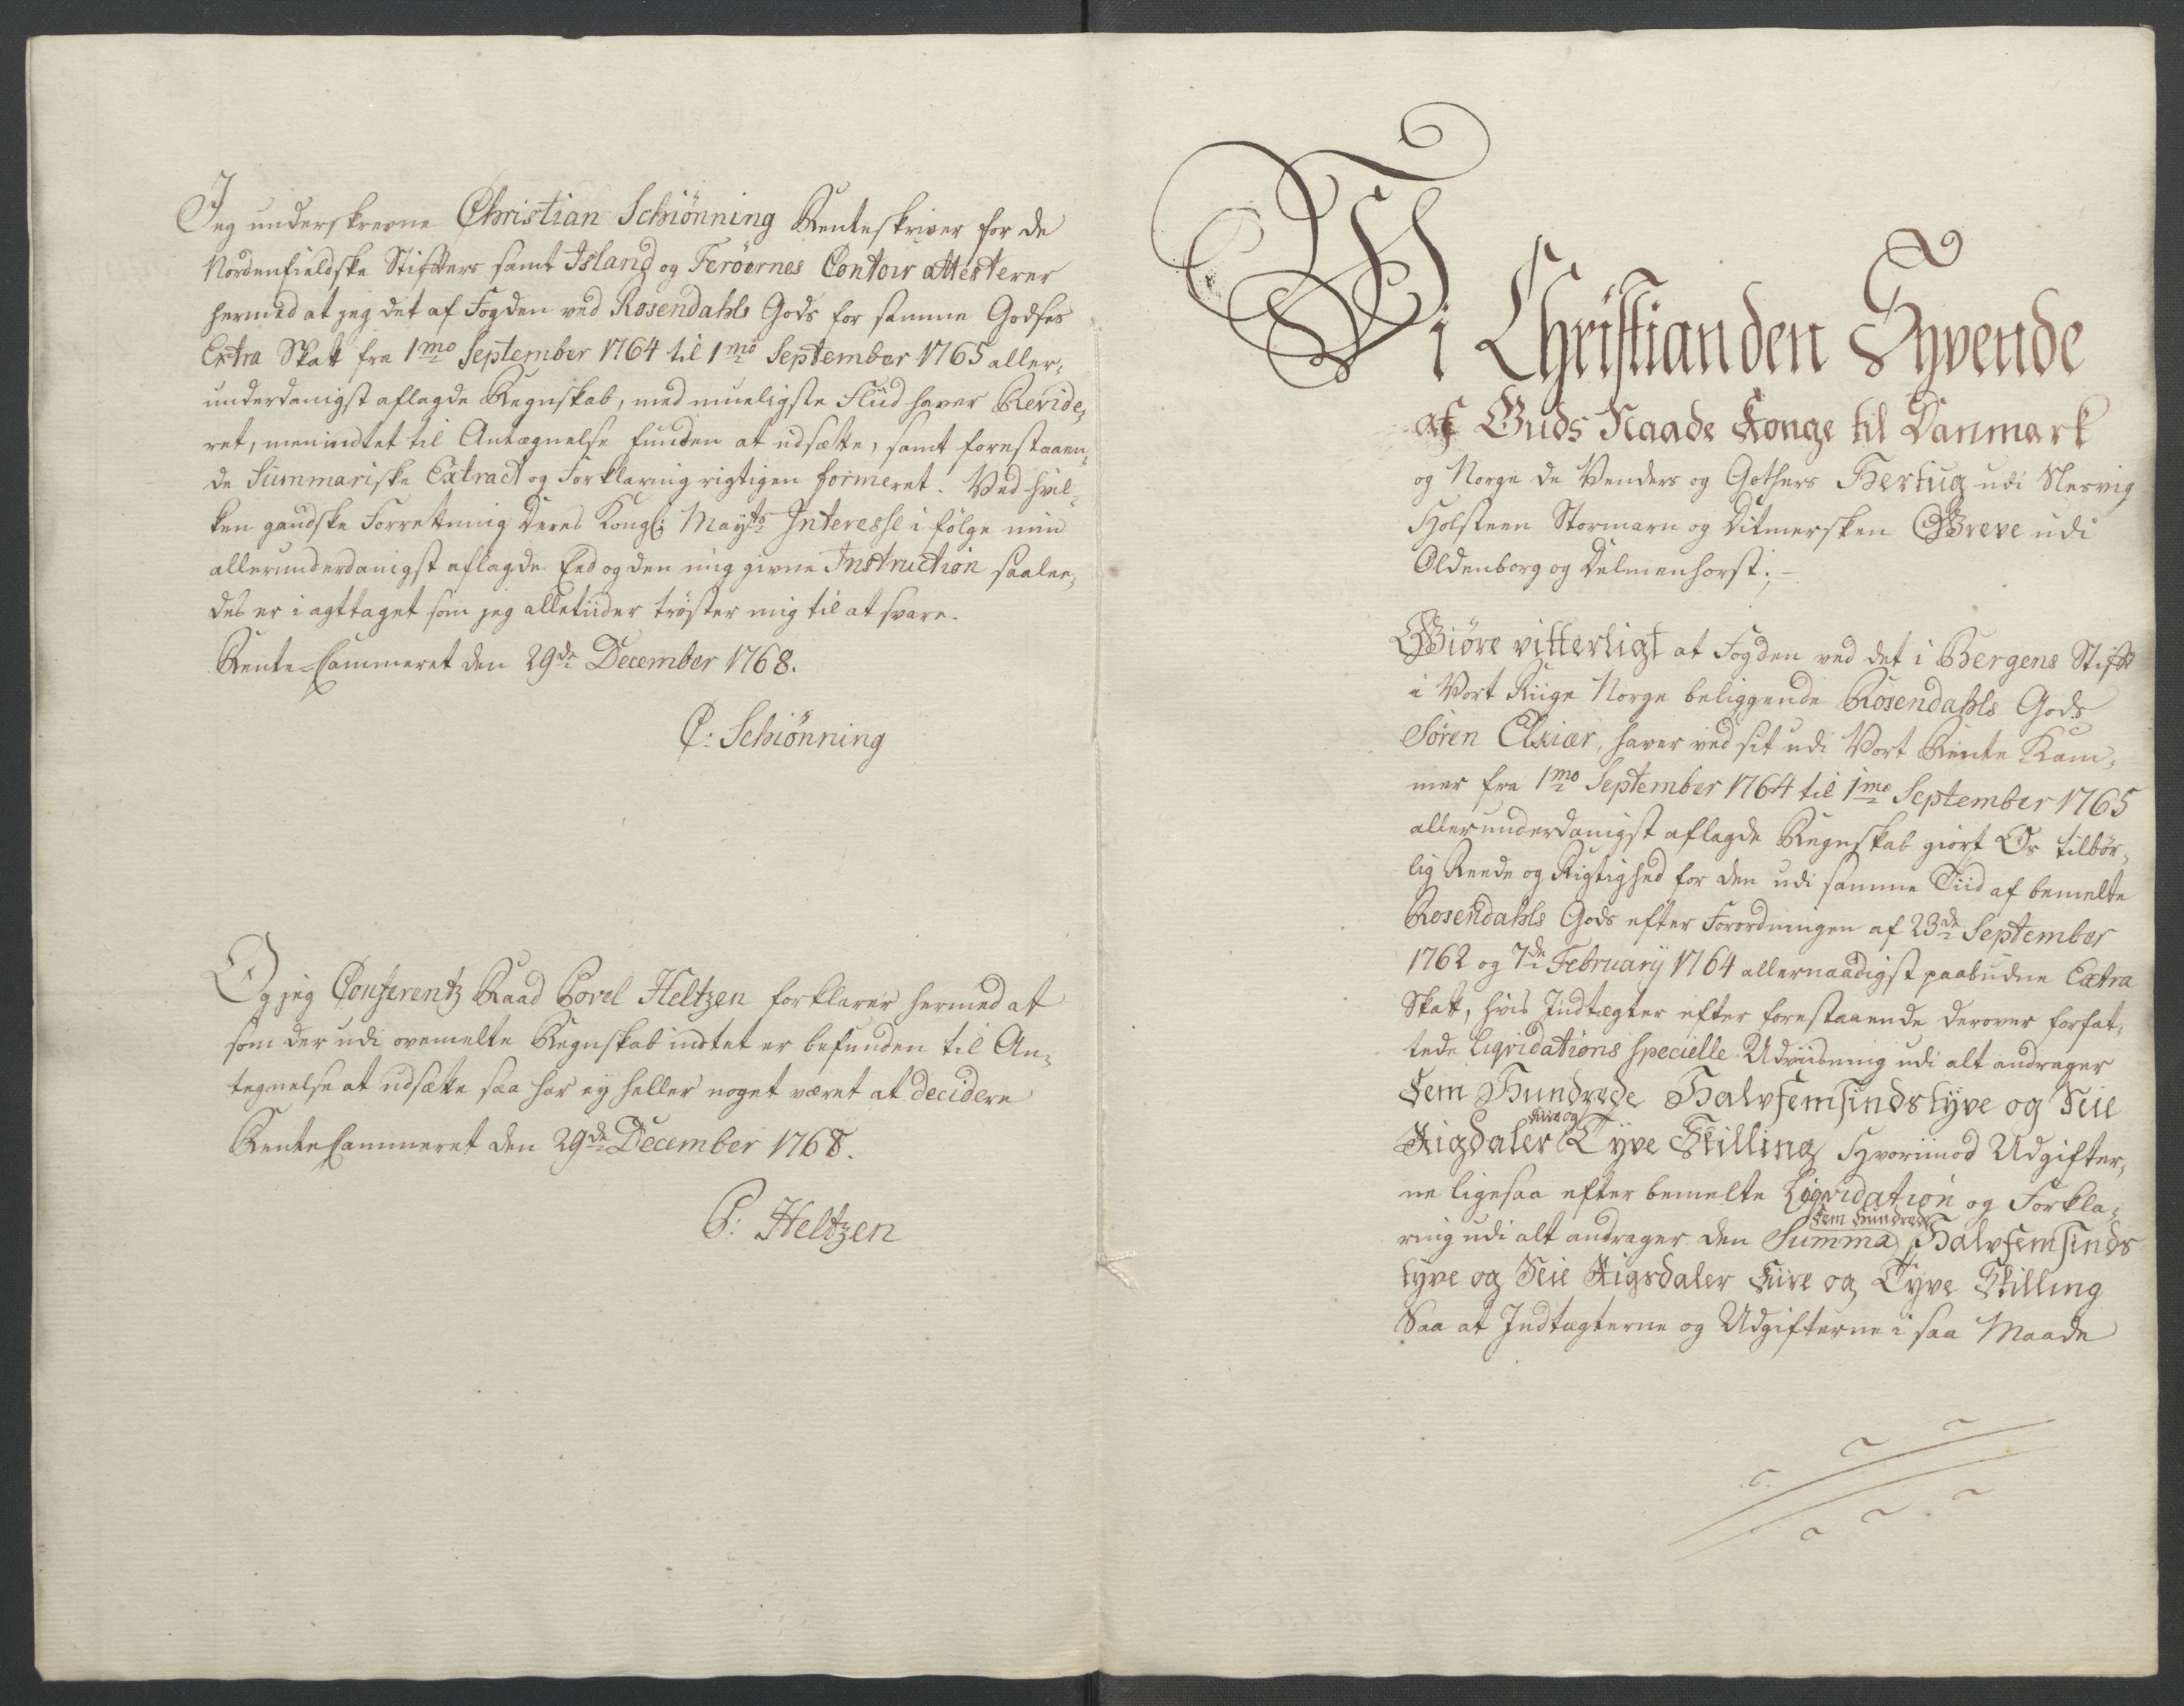 Jeg underskrevne Christian Schiönning Renteskriver for de
Nordenfieldske Stifters samt Island og Feröernes Contoir attesterer
hermed at jeg det af Fogden ved Rosendahls Gods for samme Godses
Extra Skatt fra 1mo September 1764 til 1mo September 1765 aller,
underdanigst aflagde Regnskab, med mueligste Fliid haver Revide,
ret, men indtet til Antægnelse funden at udsætte, samt forestaaen,
de Summariske Extract og Forklaring rigtigen formeret. Ved hvil,
ken gandske Forretning Deres Kongl: Mayts Interesse i fölge min
allerunderdanigst aflagde Eed og den mig givne Instruction saalee,
des er i agttaget som jeg alletiider tröster mig til at svare.
Rente-Cammeret den 29de December 1768.
C: Schiönning
Og jeg Conferentz Raad Povel Heltzen forklarer hermed at
som der udi ovemelte Regnskab indtet er befunden til An,
tegnelse at udsætte saa har ey heller noget været at decidere
RenteCammeret den 29de December 1768.
P: Heltzen
Wi Christian den Syvende
af Guds Naade Konge til Danmark
og Norge de Venders og Gothers Hertug udi Slesvig
Holsteen Stormarn og Ditmersken Greve udi
Oldenborg og Delmenhorst; -
Giöre vitterligt at Fogden ved det i Bergens Stift
i Vort Riige Norge beliggende Rosendahls Gods
Sören Elkiær, haver ved sit udi Vort Rente Kam,
mer fra 1mo September 1764 til 1mo September 1765
allerunderdanigst aflagde Regnskab giort Os tilbör,
lig Reede og Rigtighed for den udi samme Tiid af bemelte
Rosendahls Gods efter Forordningen af 23de September
1762 og 7de February 1764 allernaadigst paabudne Extra
Skatt, hvis Indtægter efter forestaaende derover forfat,
tede Liqvidations specielle Udviisning udi alt andrager
Fem Hundrede Halvfemsindstyve og Seie
Rigdaler Fiire og Tyve Skilling Hvoriimod Udgifter,
ne ligesaa efter bemelte Liqvidation og Forkla,
ring udi alt andrager den Summa Fem Hundrede Halvfemsinds
tyve og Seie Rigsdaler Fiire og Tyve Skilling
Saa at Indtægterne og Udgifterne i saa Maade